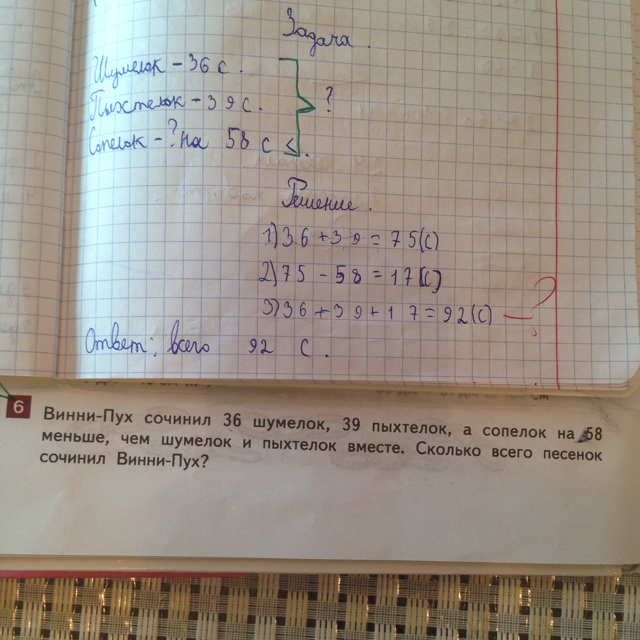 Задача.
Шумелок – 36 с.
Пыхтелок – 39 с.
?
Сопелок – ? на 58 с <.
Решение.
1) 36 + 39 = 75 (с)
2) 75 – 58 = 17 (с)
3) 36 + 39 + 17 = 92 (с) — ?
Ответ: всего 92 с.
6
Винни-Пух сочинил 36 шумелок, 39 пыхтелок, а сопелок на 58
меньше, чем шумелок и пыхтелок вместе. Сколько всего песенок
сочинил Винни-Пух?